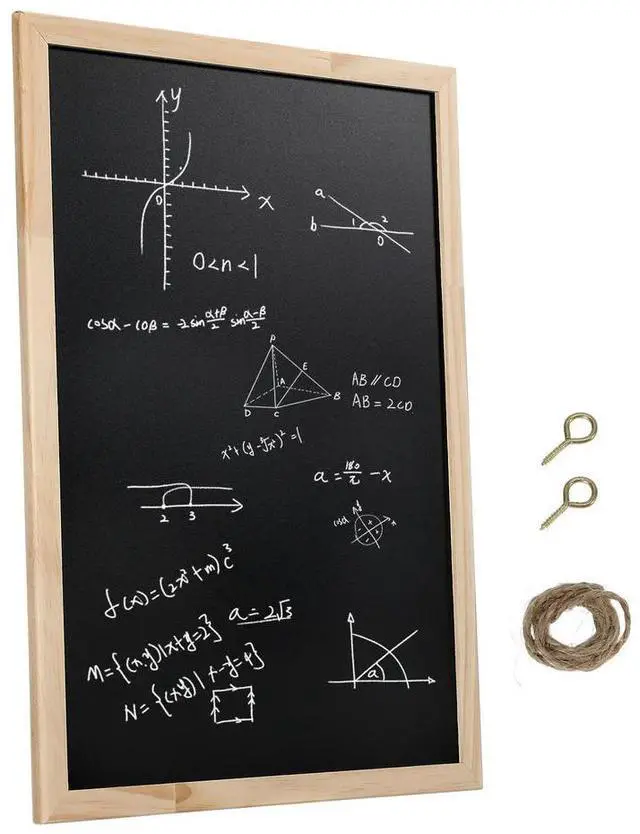 y
x
0
0<n<1
a
b
1 2
0
cosα - coβ = -2sin α+β/2 sin α-β/2
P
E
A
B
D
C
AB // CD
AB = 2CD
x²+(y-∛x²)²=1
a = 180/π - x
2 3
cosα
x
f(x)=(2x³+m)c³
a=2√3
M={(x,y)|x+y=2}
N={(x,y)|+-y=4}
a